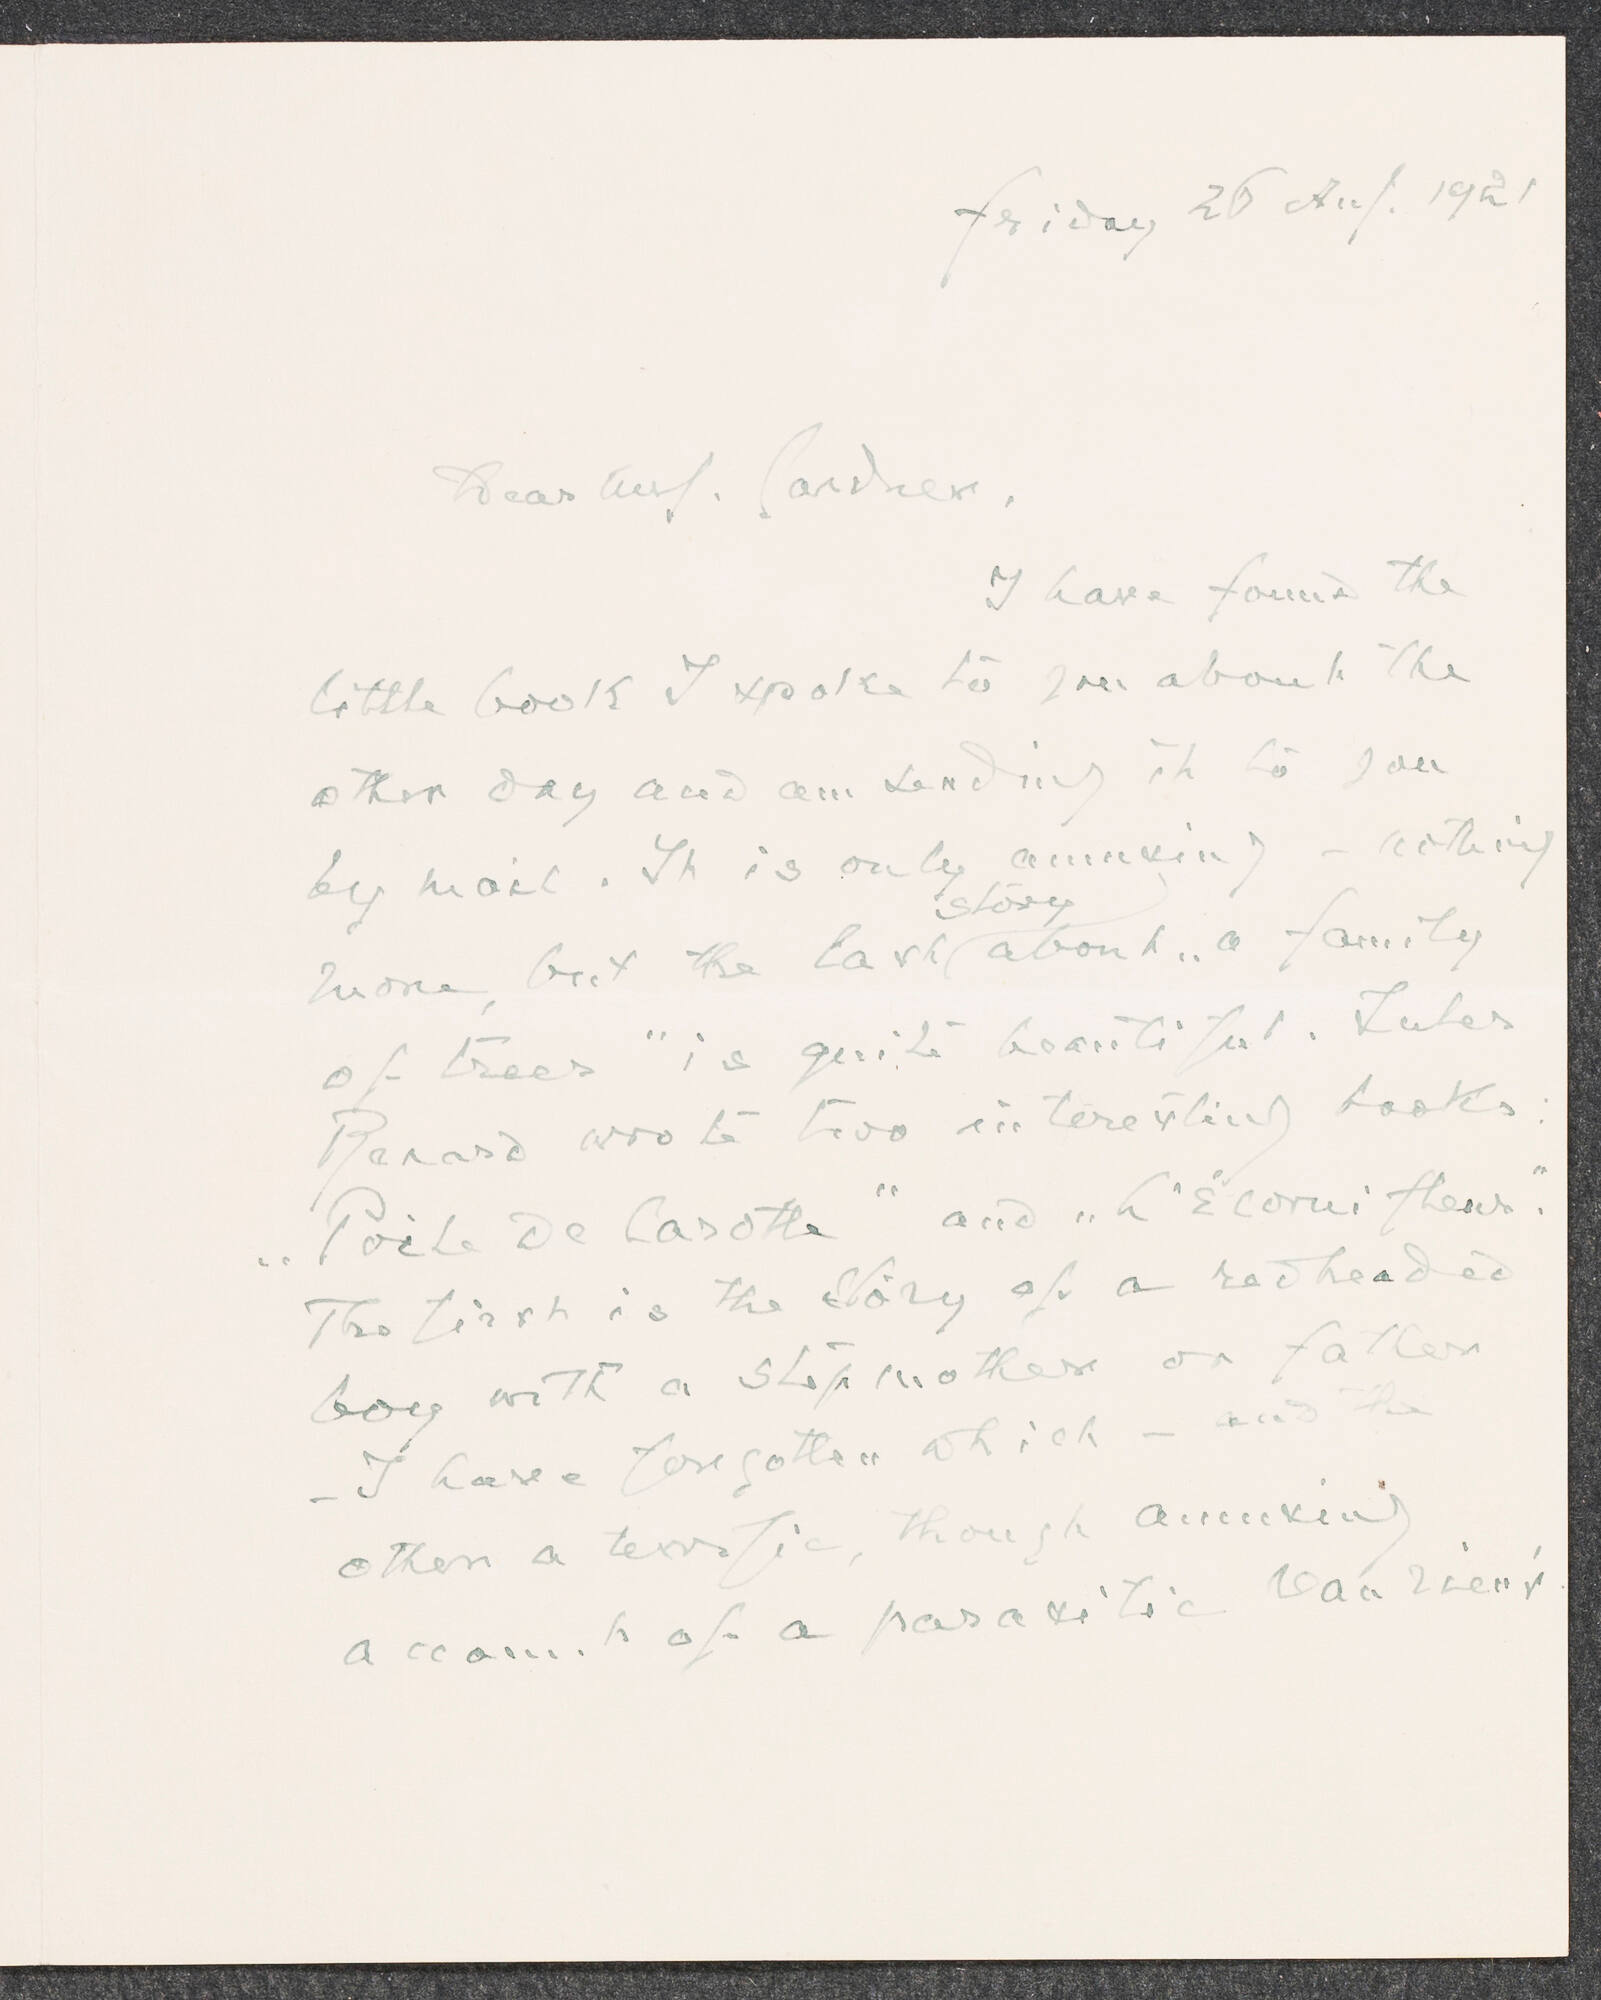 Friday 26 Aug. 1921
Dear Mrs. Gardner.
I have found the
little book I spoke to you about the
other day and am sending it to you
by mail. It is only amusing – nothing
more, but the last story about „a family
of trees" is quite beautiful. Jules
Renard wrote two interesting books:
„Poile de Carotte" and „L'Écornifleur".
The first is the story of a redheaded
boy with a stepmother or father
– I have forgotten which – and the
other a terrific, though amusing
account of a parasitic